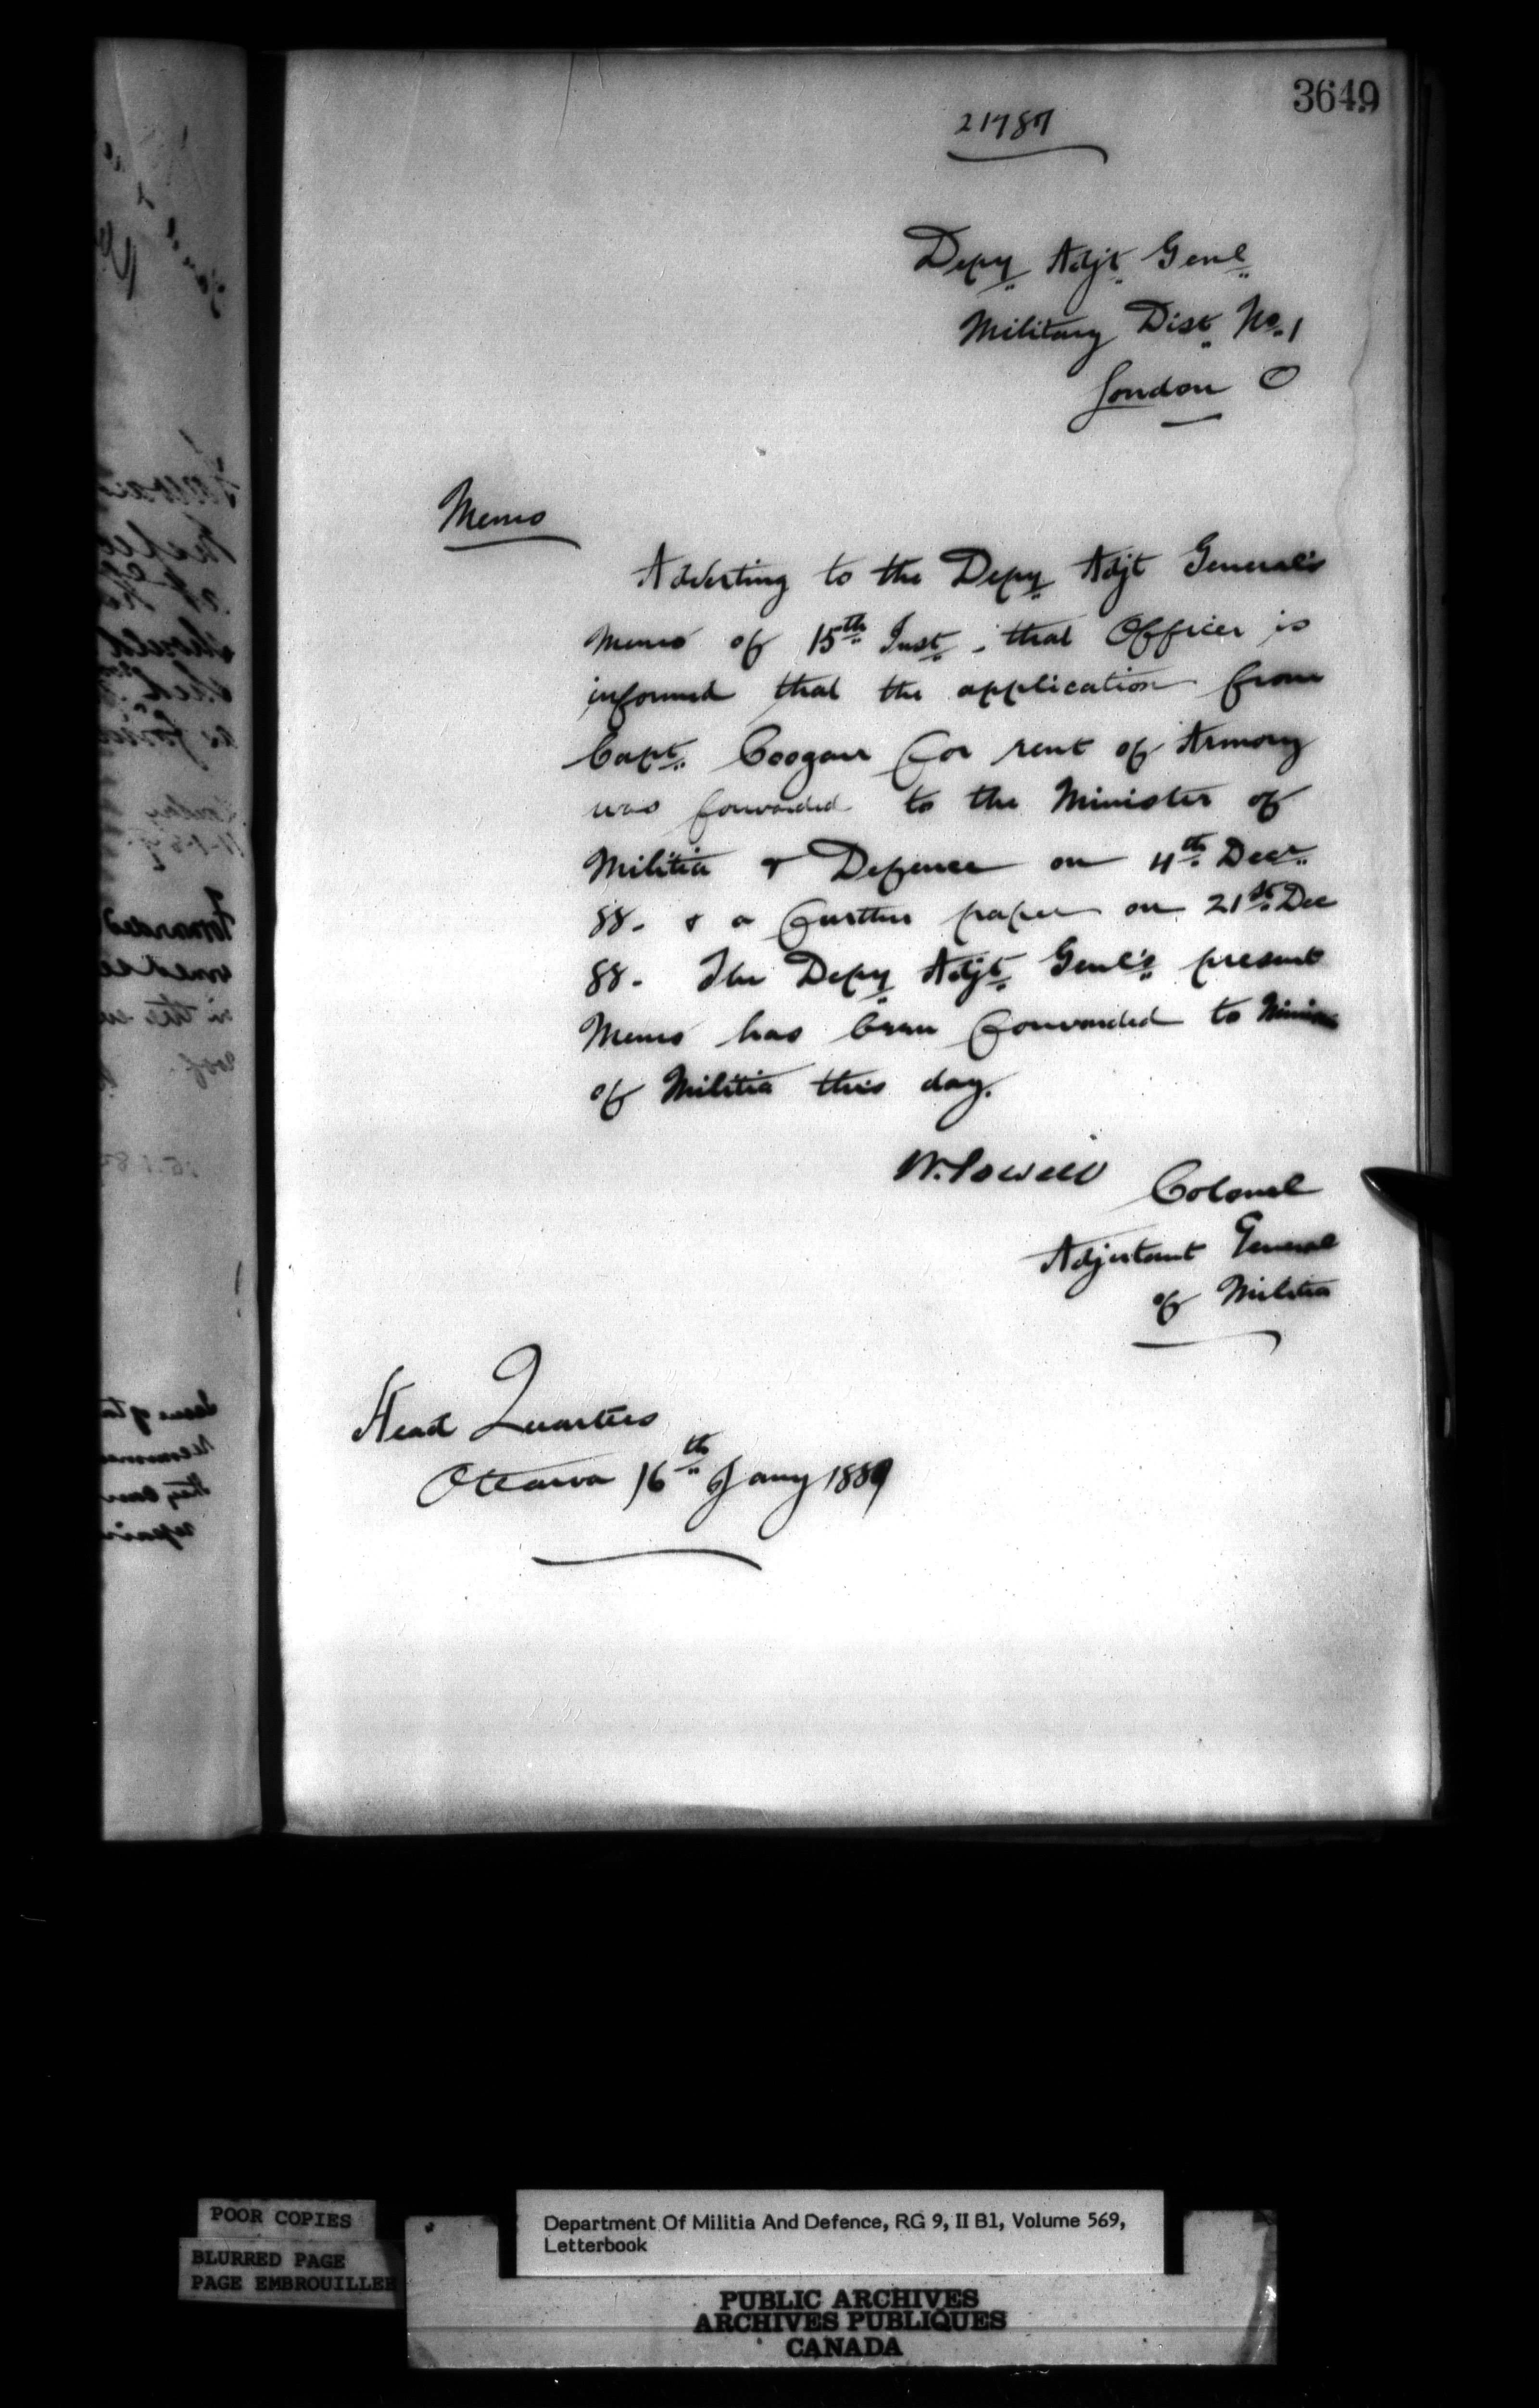 3649
21787
Depy Adjt Genl
Military Dist No. 1
London O
Memo
Adverting to the Depy Adjt General's
Memo of 15th Inst, that Officer is
informed that the application from
Capt. Coogan for rent of Armory
was forwarded to the Minister of
Militia & Defence on 4th Decr
88. & a further paper on 21st Dec
88. The Depy Adjt Genl's present
Memo has been forwarded to
of Militia this day.
W. Powell Colonel
Adjutant General
of Militia
Head Quarters
Ottawa 16th Jany 1889
POOR COPIES
BLURRED PAGE
PAGE EMBROUILLEE
Department Of Militia And Defence, RG 9, II B1, Volume 569,
Letterbook
PUBLIC ARCHIVES
ARCHIVES PUBLIQUES
CANADA